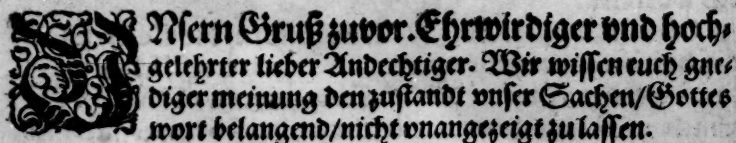 VNsern Gruß zuvor. Ehrwirdiger vnd hoch⸗
gelehrter lieber Andechtiger. Wir wissen euch gne⸗
diger meinung den zustandt vnser Sachen/Gottes
wort belangend/nicht vnangezeigt zu lassen.